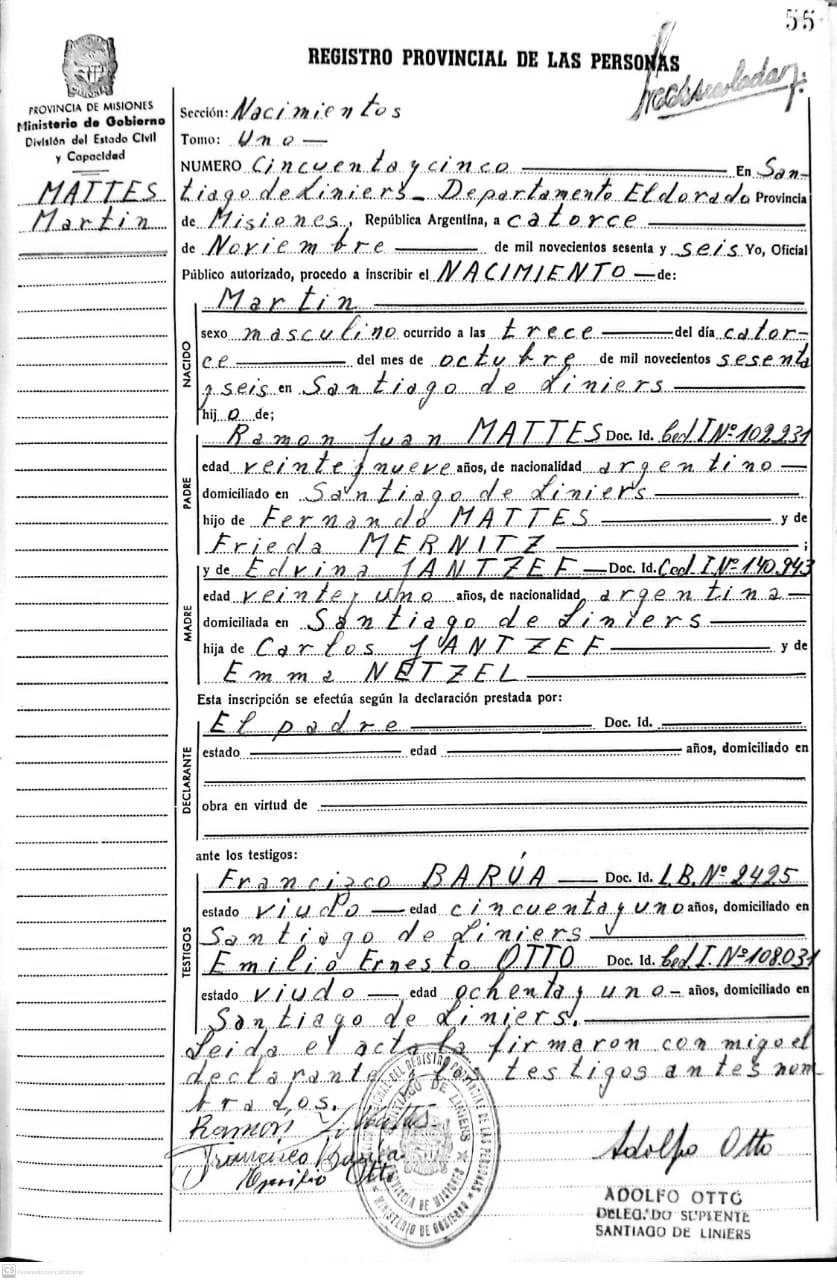 55
REGISTRO PROVINCIAL DE LAS PERSONAS
PROVINCIA DE MISIONES
Ministerio de Gobierno
División del Estado Civil
y Capacidad
MATTES
Martin
Sección: Nacimientos
Tomo: Uno
NUMERO Cincuenta y cinco En San-
tiago de Liniers - Departamento Eldorado Provincia
de Misiones, República Argentina, a catorce
de Noviembre de mil novecientos sesenta y seis Yo, Oficial
Público autorizado, procedo a inscribir el NACIMIENTO de:
Martin
NACIDO
sexo masculino ocurrido a las trece del día cator-
ce del mes de octubre de mil novecientos sesenta
y seis en Santiago de Liniers
hijo de;
PADRE
Ramon Juan MATTES Doc. Id. Ced. I Nº 102231
edad veinte y nueve años, de nacionalidad argentino
domiciliado en Santiago de Liniers
hijo de Fernando MATTES y de
Frieda MERNITZ ;
MADRE
y de Edvina JANTZEF Doc. Id. Ced. I. Nº 140.943
edad veinte y uno años, de nacionalidad argentina
domiciliada en Santiago de Liniers
hija de Carlos JANTZEF y de
Emma NETZEL
Esta inscripción se efectúa según la declaración prestada por:
DECLARANTE
El padre Doc. Id.
estado edad años, domiciliado en
obra en virtud de
ante los testigos:
TESTIGOS
Francisco BARÚA Doc. Id. L.B. Nº 2425
estado viudo edad cincuenta y uno años, domiciliado en
Santiago de Liniers
Emilio Ernesto OTTO Doc. Id. Ced. I. Nº 108.031
estado viudo edad ochenta y uno años, domiciliado en
Santiago de Liniers.
Leida el acta la firmaron con migo el
declarante y los testigos antes nom
brados.
Ramón J. Mattes
Francisco Barúa
Otto
DEL REGISTRO PROVINCIAL DE LAS PERSONAS
SANTIAGO DE LINIERS
PROVINCIA DE MISIONES
MINISTERIO DE GOBIERNO
Adolfo Otto
ADOLFO OTTO
DELEG.DO SUPLENTE
SANTIAGO DE LINIERS
CS
Escaneado con CamScanner